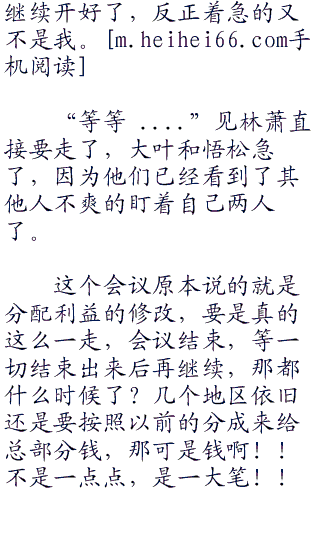 继续开好了，反正着急的又
不是我。[m.heihei66.com手
机阅读]
“等等 ....”见林萧直
接要走了，大叶和悟松急
了，因为他们已经看到了其
他人不爽的盯着自己两人
了。
这个会议原本说的就是
分配利益的修改，要是真的
这么一走，会议结束，等一
切结束出来后再继续，那都
什么时候了？几个地区依旧
还是要按照以前的分成来给
总部分钱，那可是钱啊！！
不是一点点，是一大笔！！